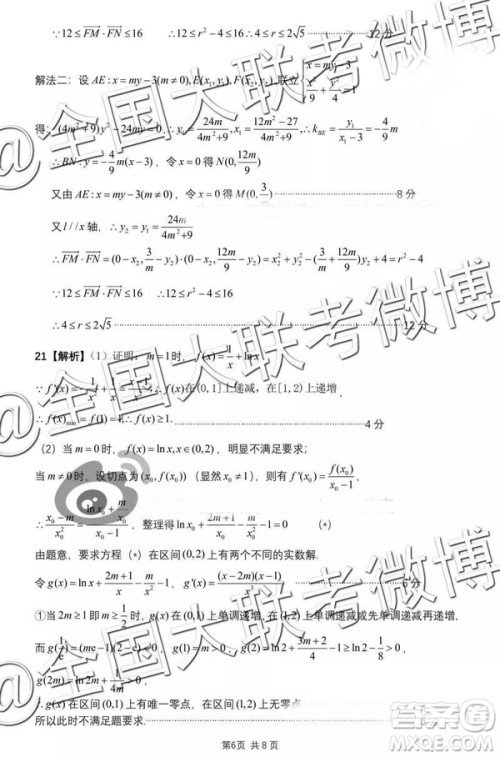 ∵12≤FM·FN≤16 ∴12≤r²−4≤16∴4≤r≤2√5 ……12分
解法二：设 AE: x=my−3(m≠0),E(x₁,y₁),F(x₂,y₂) 联立 {x=my−3, x²/9+y²/4=1
得: (4m²+9)y²−24my=0∴y₁=24m/(4m²+9), x₁=(12m²−27)/(4m²+9) ∴k_BE=y₁/(x₁−3)=−4m/9
∴BN: y=−4/9 m(x−3), 令x=0得N(0,12m/9)
又由AE: x=my−3(m≠0), 令x=0得M(0,3/m) ……8分
又l//x轴, ∴y₂=y₁=24m/(4m²+9)
∴FM·FN=(0−x₂,3/m−y₂)·(0−x₂,12m/9−y₂)=x₂²+y₂²+4=r²−4
∵12≤FM·FN≤16 ∴12≤r²−4≤16
∴4≤r≤2√5 ……12分
21【解析】(1) 证明: m=1时, f(x)=1/x+lnx
∴f(x)min=f(1)=1∴f(x)≥1. ……4分
(2) 当m=0时, f(x)=lnx,x∈(0,2), 明显不满足要求;
当m≠0时, 设切点为(x₀,f(x₀)) (显然x₀≠1), 则有f'(x₀)=f(x₀)/(x₀−1)
整理得lnx₀+(2m+1)/x₀−m/x₀²−1=0 (*)
由题意, 要求方程(*)在区间(0,2)上有两个不同的实数解.
令g(x)=lnx+(2m+1)/x−m/x²−1, g'(x)=(x−2m)(x−1)/x³ ……6分
①当2m≥1即m≥1/2时, g(x)在(0,1)上单调递增, 在(1,2)上单调递减或先单调递减再递增,
g(1)=m>0, g(2)=ln2+(3m+2)/4−1≥ln2−1/8>0,
∴g(x)在区间(0,1)上有唯一零点, 在区间(1,2)上无零点,
所以此时不满足题要求.
第6页 共8页
@全国大联考微博
@全国大联考微博
@全国大联考微博
答案圈